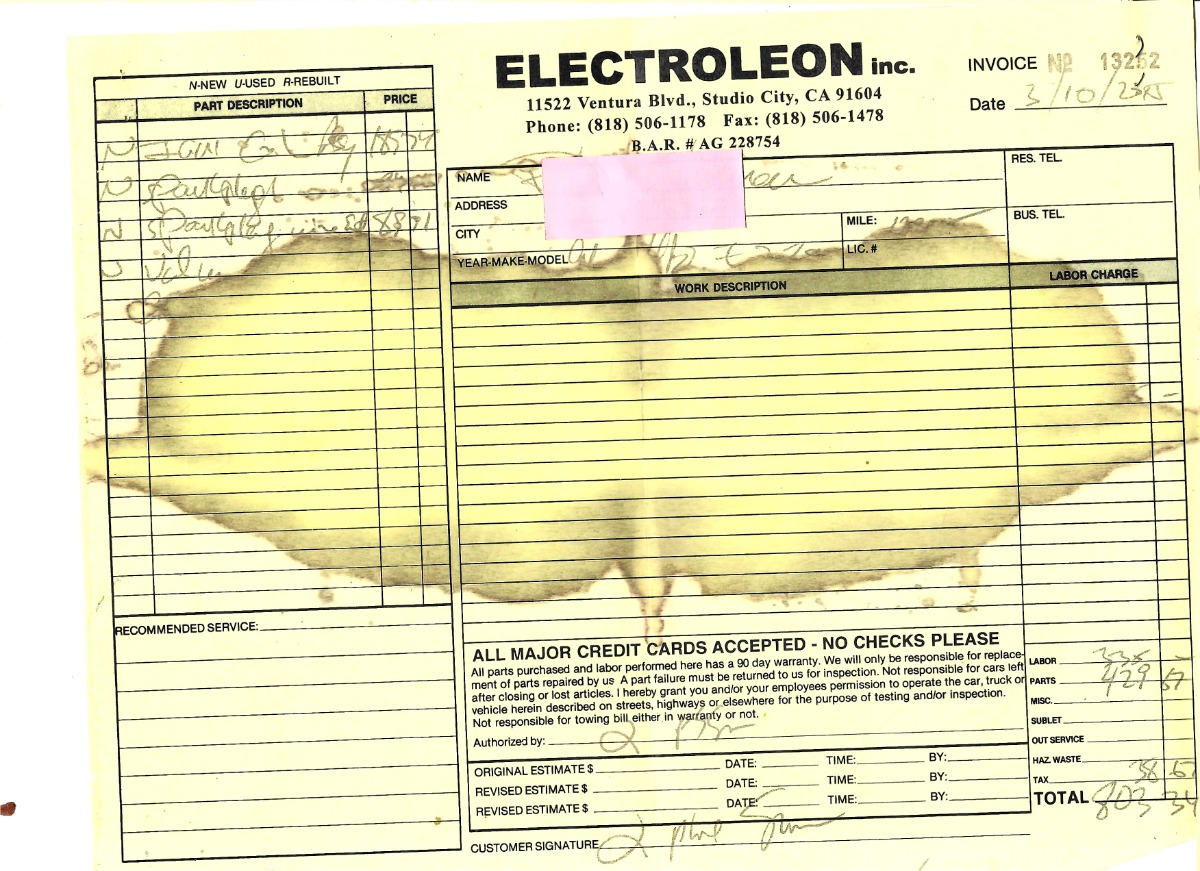 ELECTROLEON inc.
11522 Ventura Blvd., Studio City, CA 91604
Phone: (818) 506-1178 Fax: (818) 506-1478
B.A.R. # AG 228754
INVOICE Nº 13252
Date 3/10/
N-NEW U-USED R-REBUILT
PART DESCRIPTION PRICE
N
N
N Sparkplug
NAME
ADDRESS
CITY
YEAR-MAKE-MODEL
MILE:
LIC. #
RES. TEL.
BUS. TEL.
WORK DESCRIPTION
LABOR CHARGE
RECOMMENDED SERVICE:
ALL MAJOR CREDIT CARDS ACCEPTED - NO CHECKS PLEASE
All parts purchased and labor performed here has a 90 day warranty. We will only be responsible for replace-
ment of parts repaired by us A part failure must be returned to us for inspection. Not responsible for cars left
after closing or lost articles. I hereby grant you and/or your employees permission to operate the car, truck or
vehicle herein described on streets, highways or elsewhere for the purpose of testing and/or inspection.
Not responsible for towing bill either in warranty or not.
Authorized by:
ORIGINAL ESTIMATE $ DATE: TIME: BY:
REVISED ESTIMATE $ DATE: TIME: BY:
REVISED ESTIMATE $ DATE: TIME: BY:
CUSTOMER SIGNATURE
LABOR 335 -
PARTS 429 67
MISC.
SUBLET
OUT SERVICE
HAZ. WASTE
TAX 38 67
TOTAL 803 34